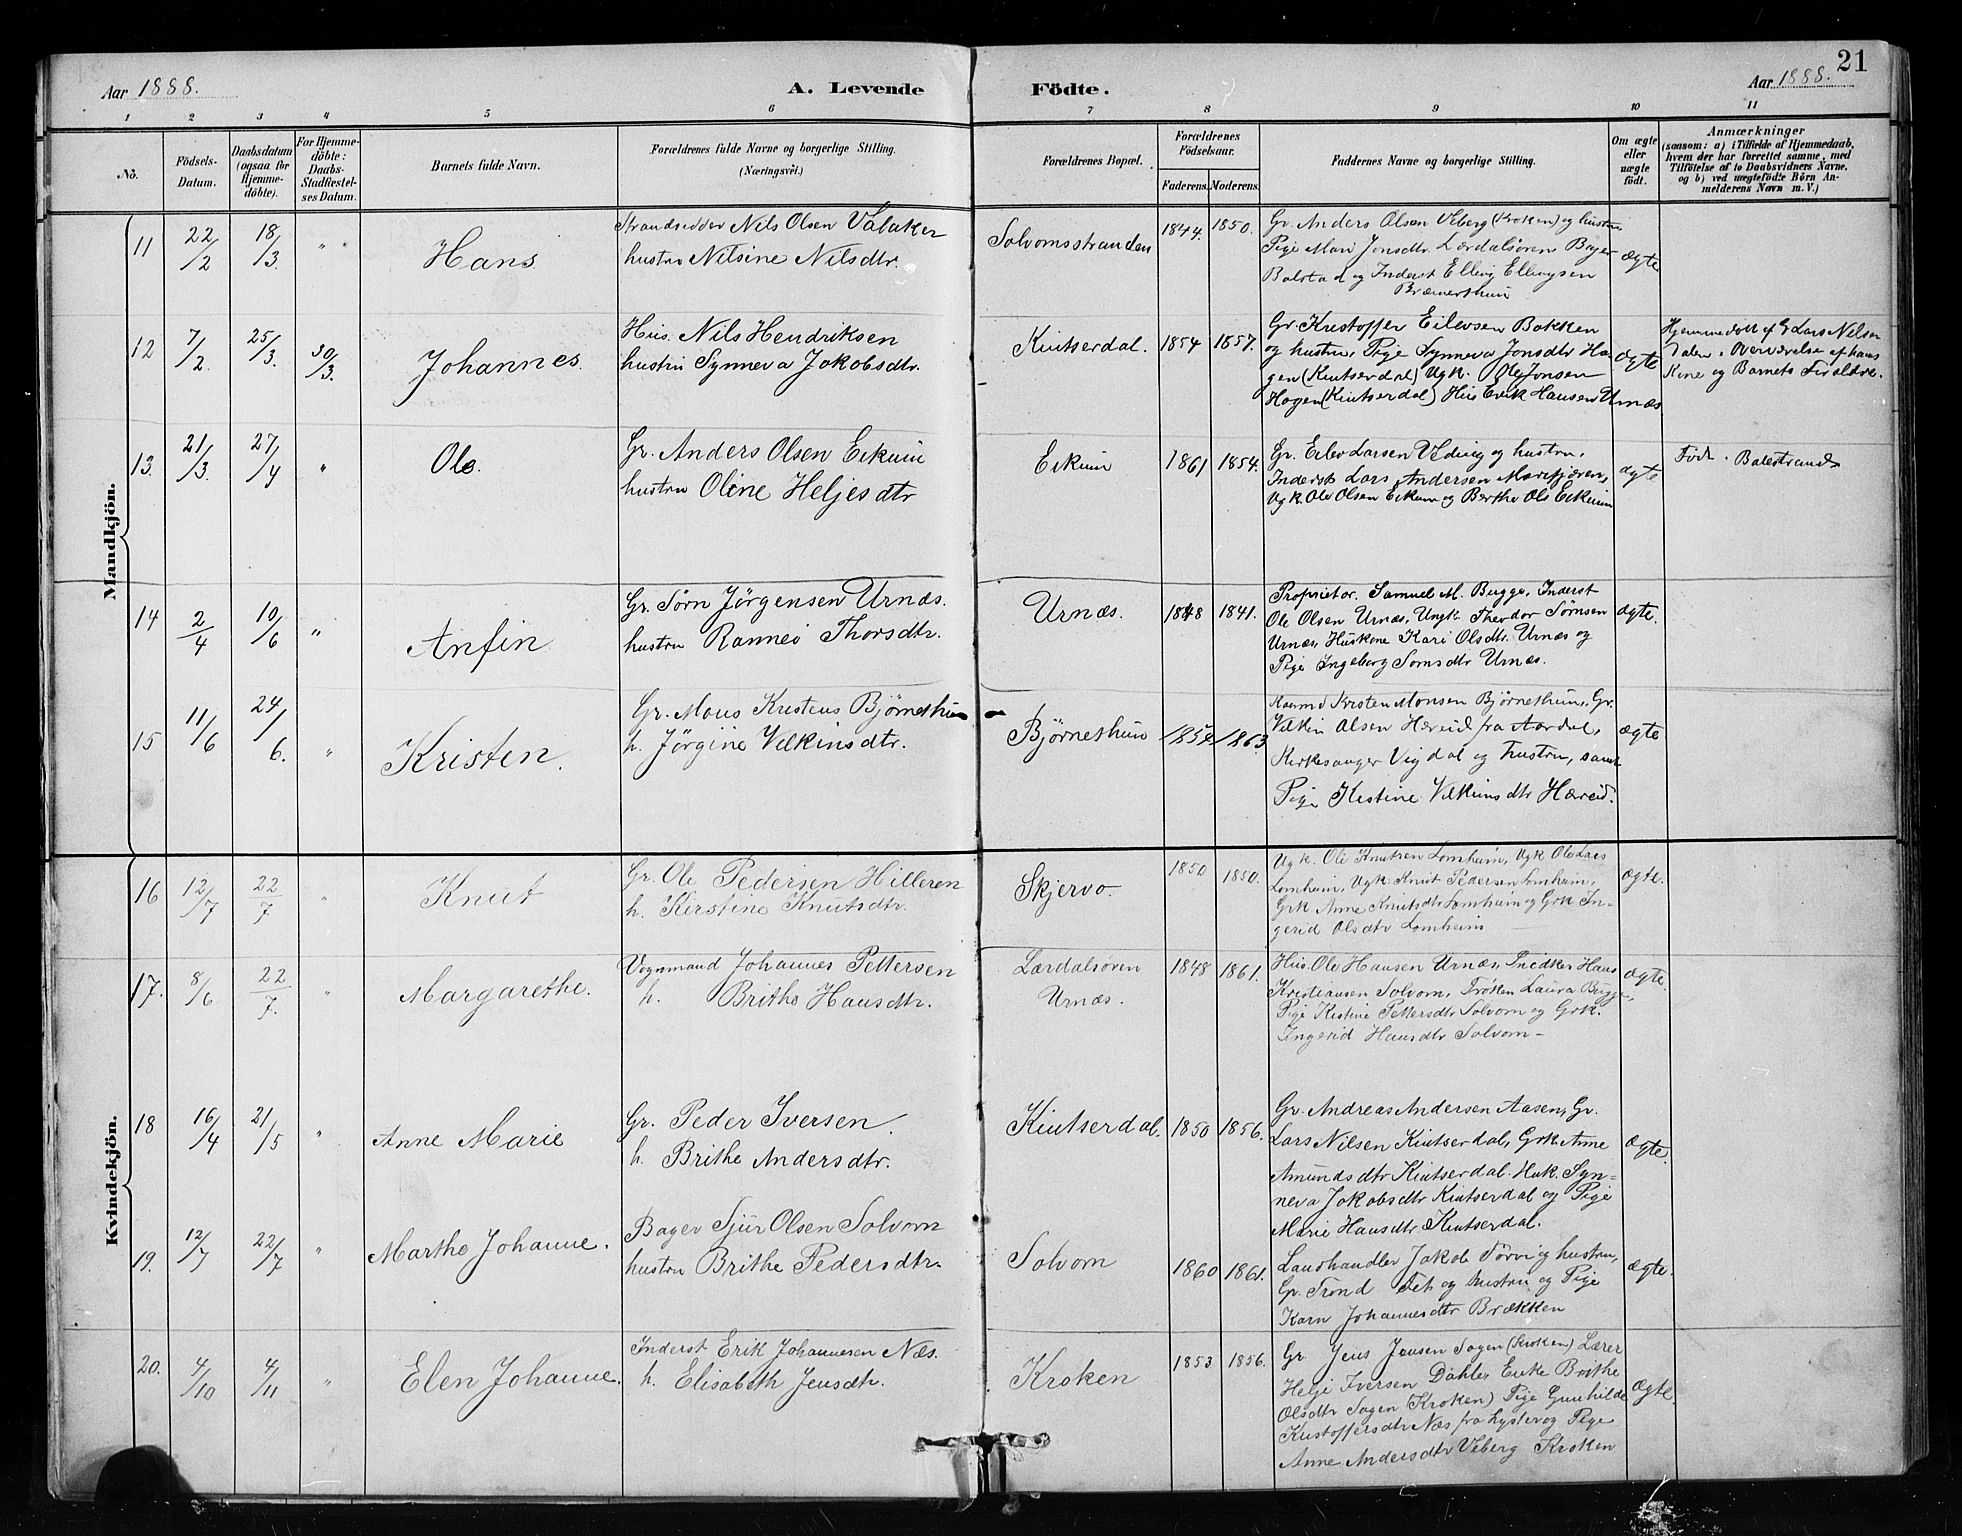 21
Aar 1888.
A. Levende Födte.
Aar 1888.
1 2 3 4 5 6 7 8 9 10 11
No.
Födsels-Datum.
Daabsdatum (ogsaa for Hjemmedöbte).
For Hjemmedöbte: Daabs-Stadfæstelses Datum.
Barnets fulde Navn.
Forældrenes fulde Navne og borgerlige Stilling.
(Næringsvei.)
Forældrenes Bopæl.
Forældrenes Födselsaar.
Faderens. Moderens.
Faddernes Navne og borgerlige Stilling.
Om ægte eller uægte födt.
Anmærkninger
(saasom: a) i Tilfælde af Hjemmedaab,
hvem der har forrettet samme, med
Tilföielse af to Daabsvidners Navne,
og b) ved uægtefödte Börn An-
melderens Navn m. V.)
Mandkjön.
11 22/2 18/3. " Hans
Strandsidder Nils Olsen Valaker
hustru Nilsine Nilsdtr.
Solvornsstranden 1844. 1850.
Gr. Anders Olsen Veberg (Kroken) og hustru
Pige Mari Jonsdtr. Lærdalsören Bager
Balstad og Inderst Elling Ellingsen
Bræmerthun
ægte
12 7/2. 25/3. 30/3. Johannes.
Hus. Nils Hendriksen
hustru Synneva Jakobsdtr.
Kintserdal. 1854 1857.
Gr. Kristoffer Eilevsen Bakken
og hustru, Pige Synneva Jonsdtr Ha-
gen (Kintserdal) Ugk. Ole Jonsen
Hagen (Kintserdal) Hus Erik Hansen Urnæs
ægte
Hjemmedöbt af G Lars Nilsen
Dalen i Overværelse af hans
Kone og Barnets Forældre.
13. 21/3. 27/4 " Ole.
Gr. Anders Olsen Eikum
hustru Oline Heljesdtr
Eikum 1861 1854.
Gr. Eilev Larsen Vedvig og hustru,
Inderst Lars Andersen Marifjören,
Ugk. Ole Olsen Eikum og Berthe Ols Eikum
ægte
Föd i Balestrand
14 2/4 10/6 " Anfin
Gr. Sörn Jörgensen Urnæs.
hustru Rannei Thorsdtr.
Urnæs. 1848 1841.
Proprietor. Samuel M. Bugge, Inderst
Ole Olsen Urnæs, Ungk. Theodor Sørnsen
Urnæs, Huskone Kari Olsdtr. Urnæs og
Pige Ingeborg Sørnsdtr Urnæs.
ægte.
15 11/6 24/6. " Kristen.
Gr. Mons Kristens Bjørnethun
h. Jörgine Vilkinsdtr.
Bjørnethun 1857 1863
Kaarmd Kristen Monsen Bjørnethun, Gr.
Vilkin Olsen Hæreid fra Aardal,
Kirkesanger Vigdal og hustru, samt
Pige Kistine Vilkinsdtr Hæreid.
ægte
16 12/7 22/7 " Knut
Gr. Ole Pedersen Hilleren
h. Kirstine Knutsdtr.
Skjervo. 1850 1850.
Ugk. Ole Knutsen Lomheim, Ugk Ole Lars
Lomheim, Ugk. Knut Pedersen Lomheim,
Grk Anne Knutsdtr Lomheim og Grk In-
gerid Olsdtr Lomheim
ægte.
Kvindekjön.
17. 8/6 22/7. " Margarethe.
Vognmand Johannes Pettersen
h. Brithe Hansdtr.
Lærdalsören
Urnæs.
1848 1861.
Hus. Ole Hansen Urnæs, Snedker Hans
Kristiansen Solvorn, Fröken Laura Bugge,
Pige Kistine Pettersdtr Solvorn og Grk.
Ingerid Hansdtr Solvorn –
ægte
18 16/4 21/5 " Anne Marie
Gr. Peder Iversen
h. Brithe Andersdtr.
Kintserdal. 1850 1856.
Gr. Andreas Andersen Aasen, Gr.
Lars Nilsen Kintserdal, Grk. Anne
Amundsdtr Kintserdal. Husk. Syn-
neva Jakobsdtr Kintserdal og Pige
Marie Hansdtr Kintserdal.
ægte.
19. 12/7 22/7 " Marthe Johanne.
Bager Sjur Olsen Solvorn
hustru Brithe Pedersdtr
Solvorn 1860 1861.
Landhandler Jakob Förvig hustru,
Gr. Trond Fet og hustru og Pige
Karn Johannesdtr Brækken
ægte.
20. 4/10 4/11 " Elen Johanne.
Inderst Erik Johannesen Næs.
h. Elisabeth Jensdtr.
Kroken 1853 1856.
Gr Jens Jensen Sagen (Kroken) Lærer
Helje Iversen Dahle, Enke Brithe
Olsdtr Sagen (Kroken) Pige Gunhilde
Kristoffersdtr Næs fra Lyster og Pige
Anne Andersdtr Veberg Kroken
ægte.